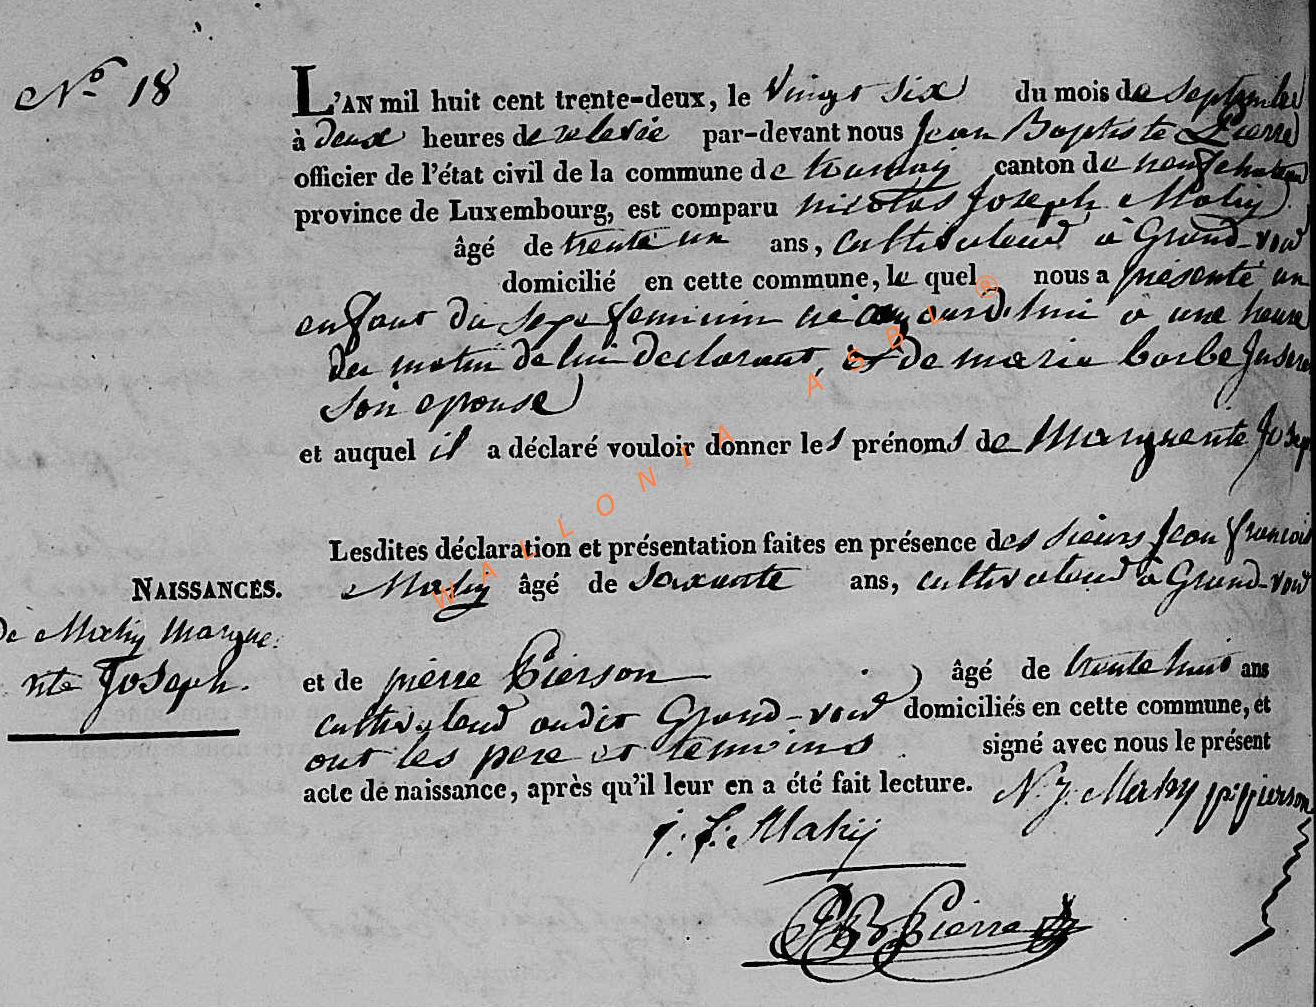 Nº 18
L'AN mil huit cent trente-deux, le vingt six du mois de septembre
à deux heures de relevée par-devant nous Jean Baptiste Pierre
officier de l'état civil de la commune de tournay canton de neufchateau
province de Luxembourg, est comparu nicolas Joseph Mahy
âgé de trente un ans, cultivateur à Grand-voir
domicilié en cette commune, le quel nous a présenté un
enfant du sexe feminin né aujourd'hui à une heure
du matin de lui déclarant, et de marie barbe
son epouse
et auquel il a déclaré vouloir donner les prénoms de Marguerite Joseph
Lesdites déclaration et présentation faites en présence des sieurs Jean françois
NAISSANCES. Mahy âgé de soixante ans, cultivateur à Grand-voir
de Mahy Margue-
rite Joseph.
et de pierre Pierson âgé de trente huit ans
cultivateur audit Grand-voir domiciliés en cette commune, et
ont les pere et temoins signé avec nous le présent
acte de naissance, après qu'il leur en a été fait lecture. N. J. Mahy p: pierson
j. f. Mahy
JB Pierre
WALLONIA ASBL ®